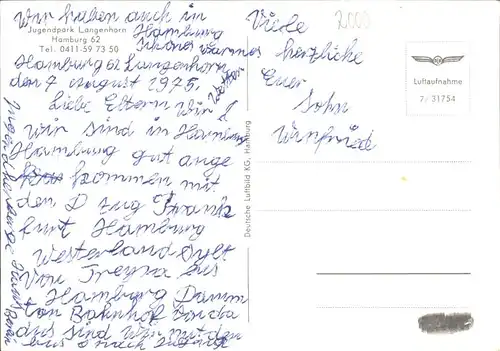 Wir haben auch in
Jugendpark Langenhorn
Hamburg 62
Tel. 0411-59 73 50
Hamburg
schönes warmes
Wetter
Hamburg 62 Langenhorn
den 7 August 1975.
Liebe Eltern Wir
Wir sind in Hamburg
Hamburg gut ange
kommen mit
den D Zug Frank
furt Hamburg
Westerland Sylt.
Von Treysa bis
Hamburg Damm
ton Bahnhof
das sind Wir mit den
Bus
Jugendherberge Haus
Viele
herzliche
Euer
Sohn
Winfried
2000
Luftaufnahme
7/ 31754
Deutsche Luftbild KG, Hamburg